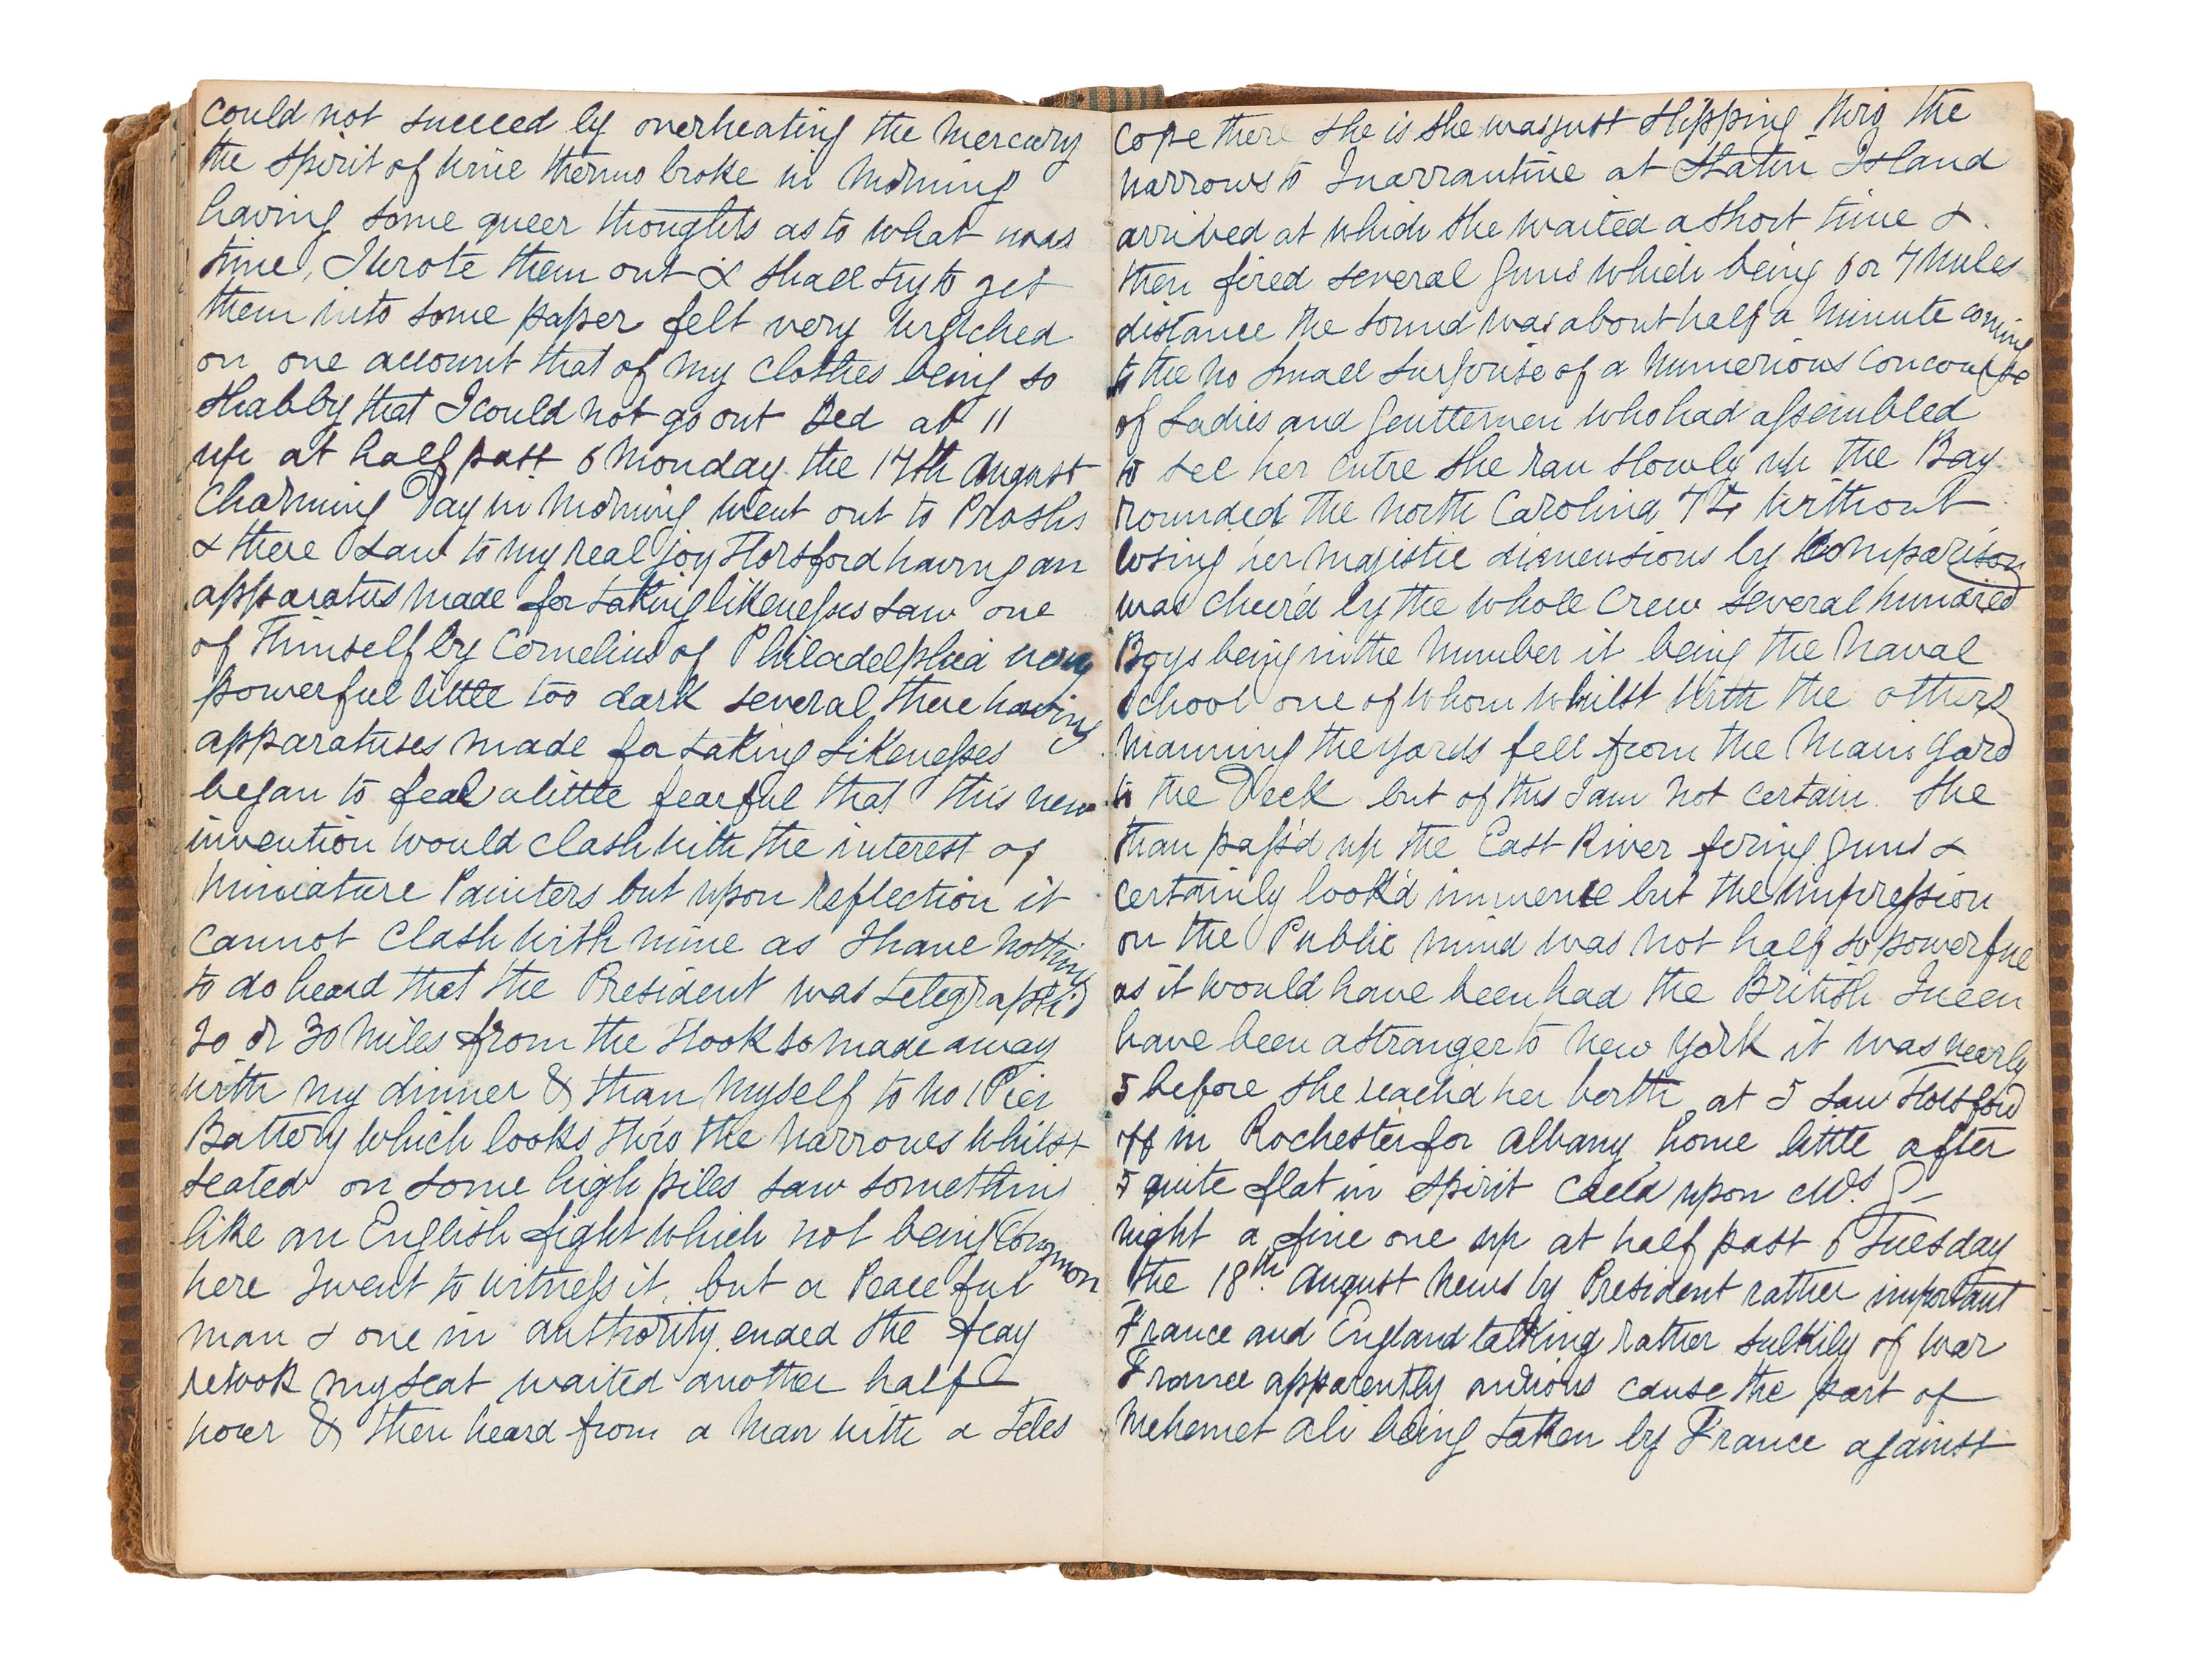 could not succeed by overheating the Mercury
the Spirit of Wine thermo broke in Morning
having some queer thoughts as to what was
time, I wrote them out & shall try to get
them into some paper felt very wretched
on one account that of my Clothes being so
shabby that I could not go out Bed at 11
up at half past 6 Monday the 17th August
Charming Day in Morning went out to Proshs
& there saw to my real joy Horsford having an
apparatus made for taking likenesses saw one
of Himself by Cornelius of Philadelphia very
powerful little too dark several there having
apparatuses made for taking Likenesses
began to feel a little fearful that this new
invention would clash with the interest of
Miniature Painters but upon reflection it
cannot clash with mine as I have nothing
to do heard that the President was telegraph'd
20 or 30 Miles from the Hook so made away
with my dinner & than Myself to No 1 Pier
Battery which looks thro the Narrows whilst
seated on some high piles saw something
like an English fight which not being Common
here I went to witness it, but a Peaceful
man & one in authority ended the fray
retook my seat waited another half
hour & then heard from a Man with a Teles
cope there she is she was just slipping thro the
Narrows to Quarrantine at Staten Island
arrived at which she waited a short time &
then fired several Guns which being 6 or 7 Miles
distance the sound was about half a Minute coming
to the no small surprise of a Numerious Concourse
of Ladies and Genttemen who had assembled
to see her entre she ran slowly up the Bay
rounded the North Carolina 74 without
losing her Majistic dimensions by Comparison
was cheer'd by the whole Crew several hundred
Boys being in the Number it being the Naval
School one of whom whilst with the others
manning the yards fell from the Main Yard
to the Deck but of this I am not certain. She
than pass'd up the East River firing Guns &
certainly look'd immense but the impression
on the Public mind was not half so powerful
as it would have been had the British Queen
have been a stranger to New York it was nearly
5 before she reach'd her berth, at 5 saw Horsford
off in Rochester for Albany, home little after
5 quite flat in spirit Call'd upon Mrs G-
night a fine one up at half past 6 Tuesday
the 18th August News by President rather important
France and England talking rather sulkily of war
France apparently anxious cause the part of
Mehemet Ali being taken by France against